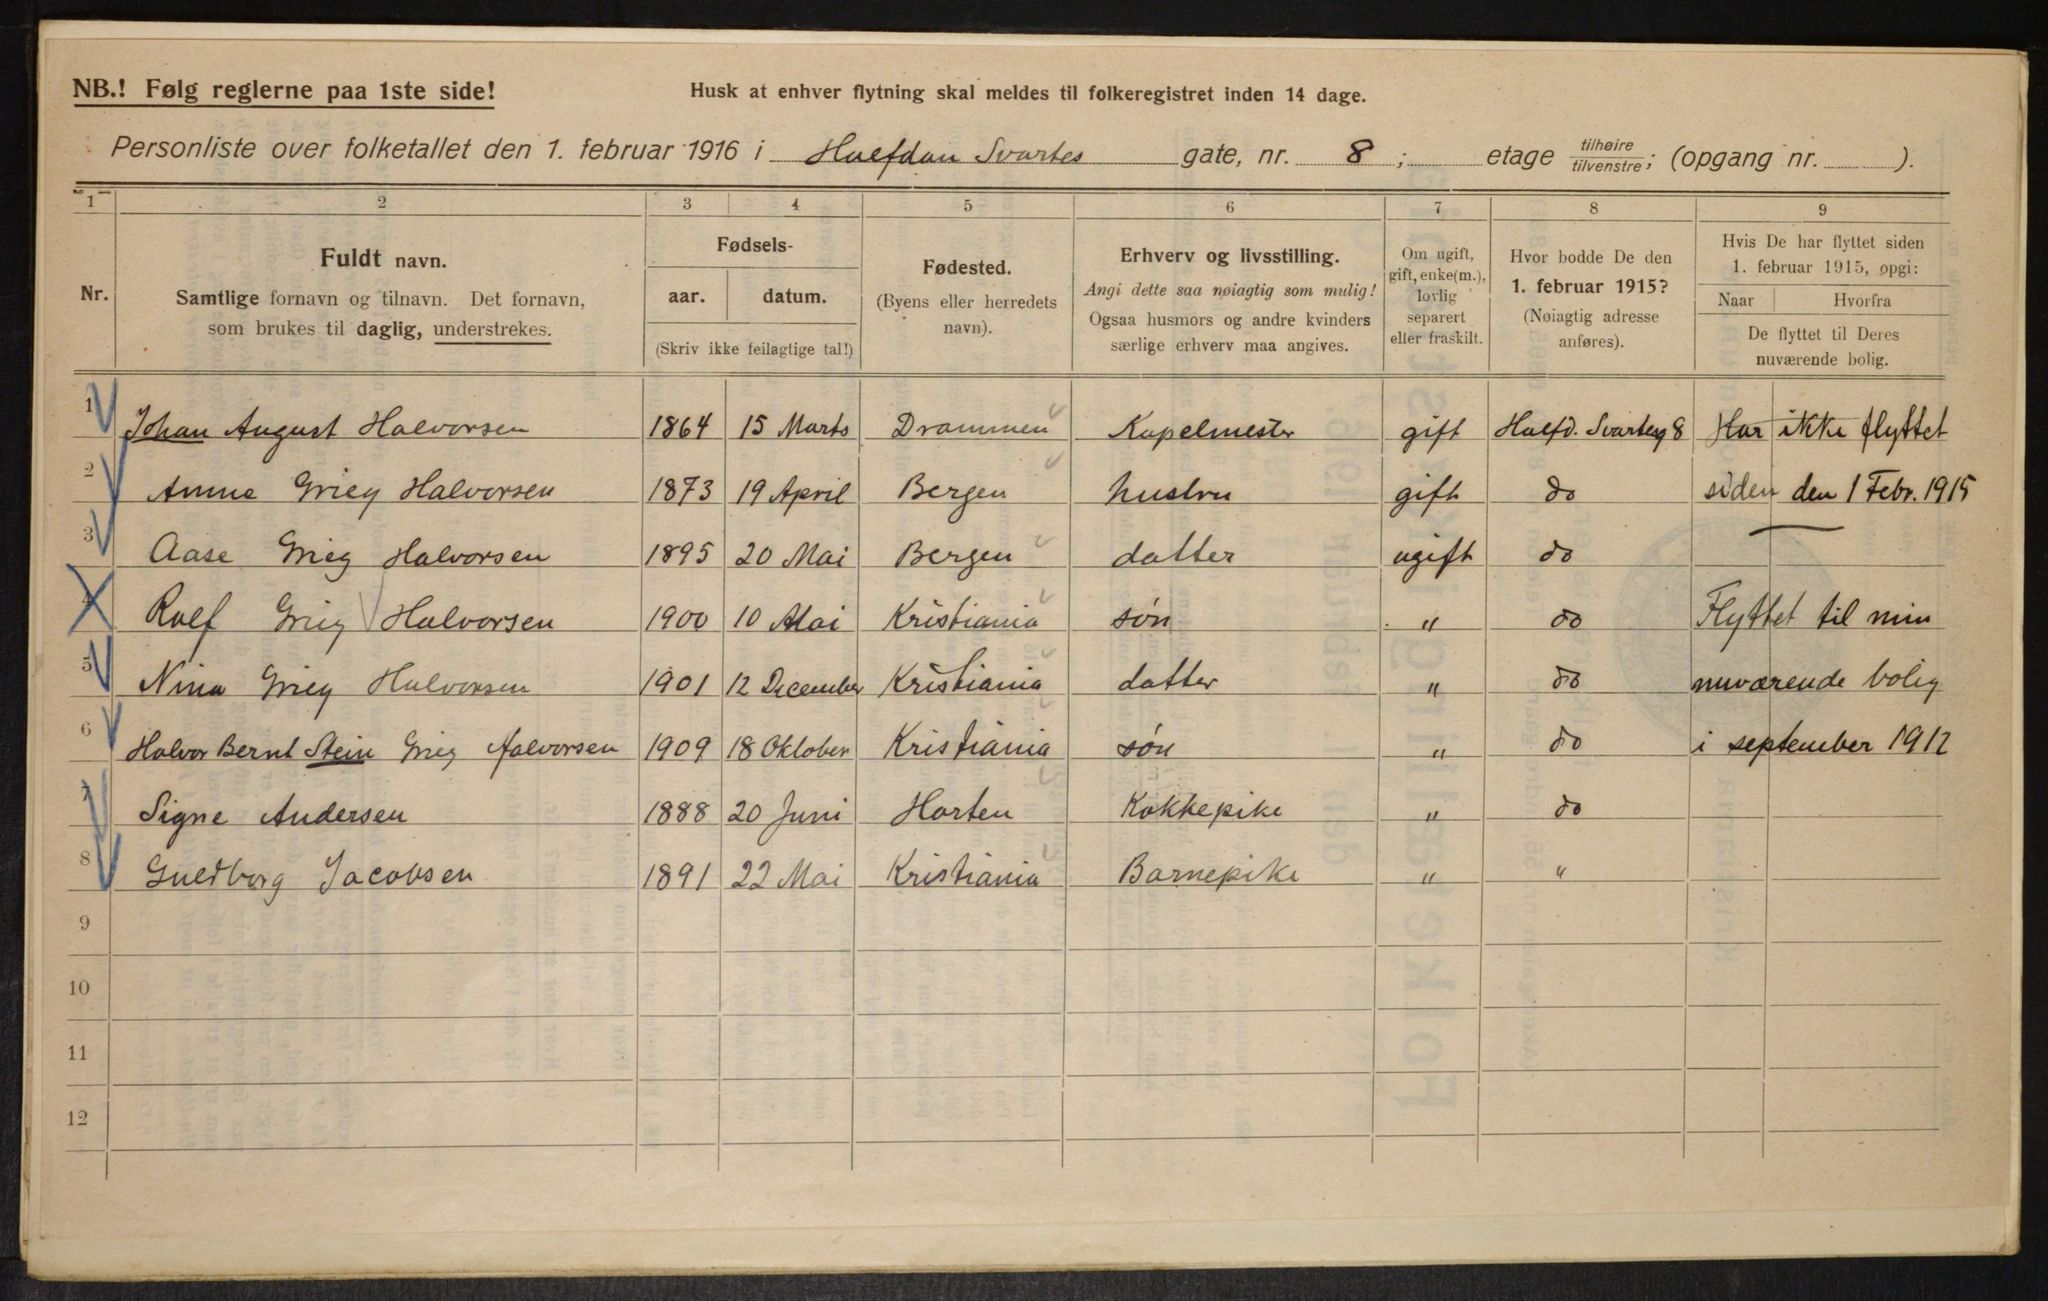 NB.! Følg reglerne paa 1ste side!
Husk at enhver flytning skal meldes til folkeregistret inden 14 dage.
Personliste over folketallet den 1. februar 1916 i Halfdan Svartes gate, nr. 8 ; etage tilhøire tilvenstre ; (opgang nr. ).
1 2 3 4 5 6 7 8 9
Nr.
Fuldt navn.
Samtlige fornavn og tilnavn. Det fornavn,
som brukes til daglig, understrekes.
Fødsels-
aar. datum.
(Skriv ikke feilagtige tal!)
Fødested.
(Byens eller herredets
navn).
Erhverv og livsstilling.
Angi dette saa nøiagtig som mulig!
Ogsaa husmors og andre kvinders
særlige erhverv maa angives.
Om ugift,
gift, enke(m.),
lovlig
separert
eller fraskilt.
Hvor bodde De den
1. februar 1915?
(Nøiagtig adresse
anføres).
Hvis De har flyttet siden
1. februar 1915, opgi:
Naar Hvorfra
De flyttet til Deres
nuværende bolig.
1 Johan August Halvorsen 1864 15 Marts Drammen Kapelmester gift Halfd. Svartesg 8 Har ikke flyttet
2 Annie Grieg Halvorsen 1873 19 April Bergen hustru gift do siden den 1 Febr. 1915
3 Aase Grieg Halvorsen 1895 20 Mai Bergen datter ugift do
4 Rolf Grieg Halvorsen 1900 10 Mai Kristiania søn " do Flyttet til min
5 Nina Grieg Halvorsen 1901 12 December Kristiania datter " do nuværende bolig
6 Halvor Bernt Stein Grieg Halvorsen 1909 18 Oktober Kristiania søn " do i september 1912
7 Signe Andersen 1888 20 Juni Horten Kokkepike " do
8 Guldborg Jacobsen 1891 22 Mai Kristiania Barnepike " "
9
10
11
12